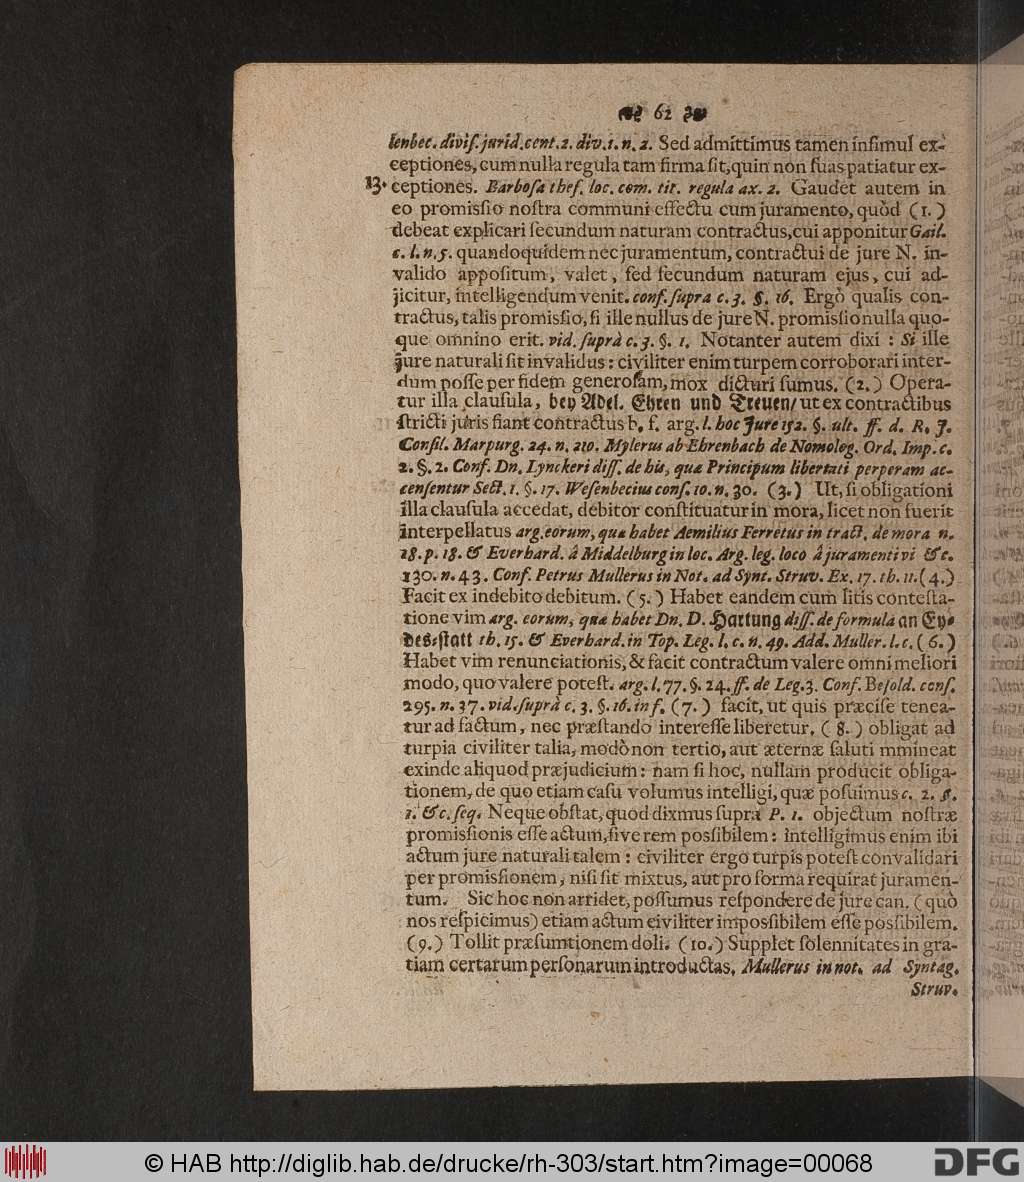 62
lenbec. divis. jurid. cent. 2. div. 1. n. 2. Sed admittimus tamen insimul ex-
ceptiones, cum nulla regula tam firma sit, quin non suas patiatur ex-
13. ceptiones. Barbosa thes. loc. com. tit. regula ax. 2. Gaudet autem in
eo promissio nostra communi effectu cum juramento, quòd (1.)
debeat explicari secundum naturam contractus, cui apponitur Gail.
c. l. n. 5. quandoquidem nec juramentum, contractui de jure N. in-
valido appositum, valet, sed secundum naturam ejus, cui ad-
jicitur, intelligendum venit. conf. supra c. 3. §. 16. Ergò qualis con-
tractus, talis promissio, si ille nullus de jure N. promissio nulla quo-
que omnino erit. vid. suprà c. 3. §. 1. Notanter autem dixi: Si ille
jure naturali sit invalidus: civiliter enim turpem corroborari inter-
dum posse per fidem generosam, mox dicturi sumus. (2.) Opera-
tur illa clausula, bey Adel. Ehren und Treuen/ ut ex contractibus
stricti juris fiant contractus b. f. arg. l. hoc Jure 152. §. ult. ff. d. R. J.
Consil. Marpurg. 24. n. 210. Mylerus ab Ehrenbach de Nomoleg. Ord. Imp. c.
2. §. 2. Conf. Dn. Lynckeri diss. de his, quæ Principum libertati perperam ac-
censentur Sect. 1. §. 17. Wesenbecius cons. 10. n. 30. (3.) Ut, si obligationi
illa clausula accedat, debitor constituatur in mora, licet non fuerit
interpellatus arg. eorum, quæ habet Aemilius Ferretus in tract. de mora n.
18. p. 18. & Everhard. â Middelburg in loc. Arg. leg. loco â juramenti vi &c.
130. n. 43. Conf. Petrus Mullerus in Not. ad Synt. Struv. Ex. 17. th. 11. (4.)
Facit ex indebito debitum. (5.) Habet eandem cum litis contesta-
tione vim arg. eorum, quæ habet Dn. D. Hartung diss. de formula an Ey-
des-statt th. 15. & Everhard. in Top. Leg. l. c. n. 49. Add. Muller. l. c. (6.)
Habet vim renunciationis, & facit contractum valere omni meliori
modo, quo valere potest. arg. l. 77. §. 24. ff. de Leg. 3. Conf. Besold. cons.
295. n. 37. vid. suprà c. 3. §. 16. in f. (7.) facit, ut quis præcise tenea-
tur ad factum, nec præstando interesse liberetur. (8.) obligat ad
turpia civiliter talia, modò non tertio, aut æternæ saluti mmineat
exinde aliquod præjudicium: nam si hoc, nullam producit obliga-
tionem, de quo etiam casu volumus intelligi, quæ posuimus c. 2. §.
1. &c. seq. Neque obstat, quod dixmus supra P. 1. objectum nostræ
promissionis esse actum, sive rem possibilem: intelligimus enim ibi
actum jure naturali talem: civiliter ergo turpis potest convalidari
per promissionem, nisi sit mixtus, aut pro forma requirat juramen-
tum. Sic hoc non arridet, possumus respondere de jure can. (quò
nos respicimus) etiam actum civiliter impossibilem esse possibilem.
(9.) Tollit præsumtionem doli. (10.) Supplet solennitates in gra-
tiam certarum personarum introductas. Mullerus in not. ad Syntag.
Struv.
© HAB http://diglib.hab.de/drucke/rh-303/start.htm?image=00068
DFG